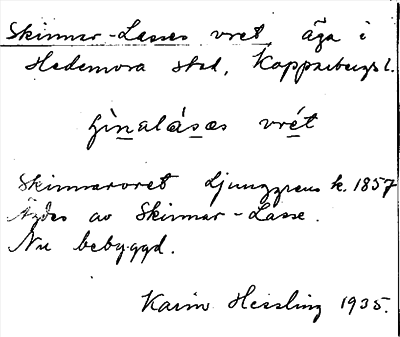 Skinnar-Lasses vret, äga i
Hedemora stad, Kopparbergs l.
vrét
Skinnarvret Ljunggrens k. 1857
Ägdes av Skinnar-Lasse.
Nu bebyggd.
Karin Hessling 1935.